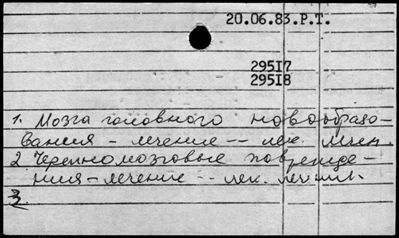 20.06.83.Р.Т.
29517
29518
1. Мозга головного новообразо-
вания - лечение -- лек. лечен.
2. Черепномозговые поврежде-
ния - лечение -- лек. лечен.
3.